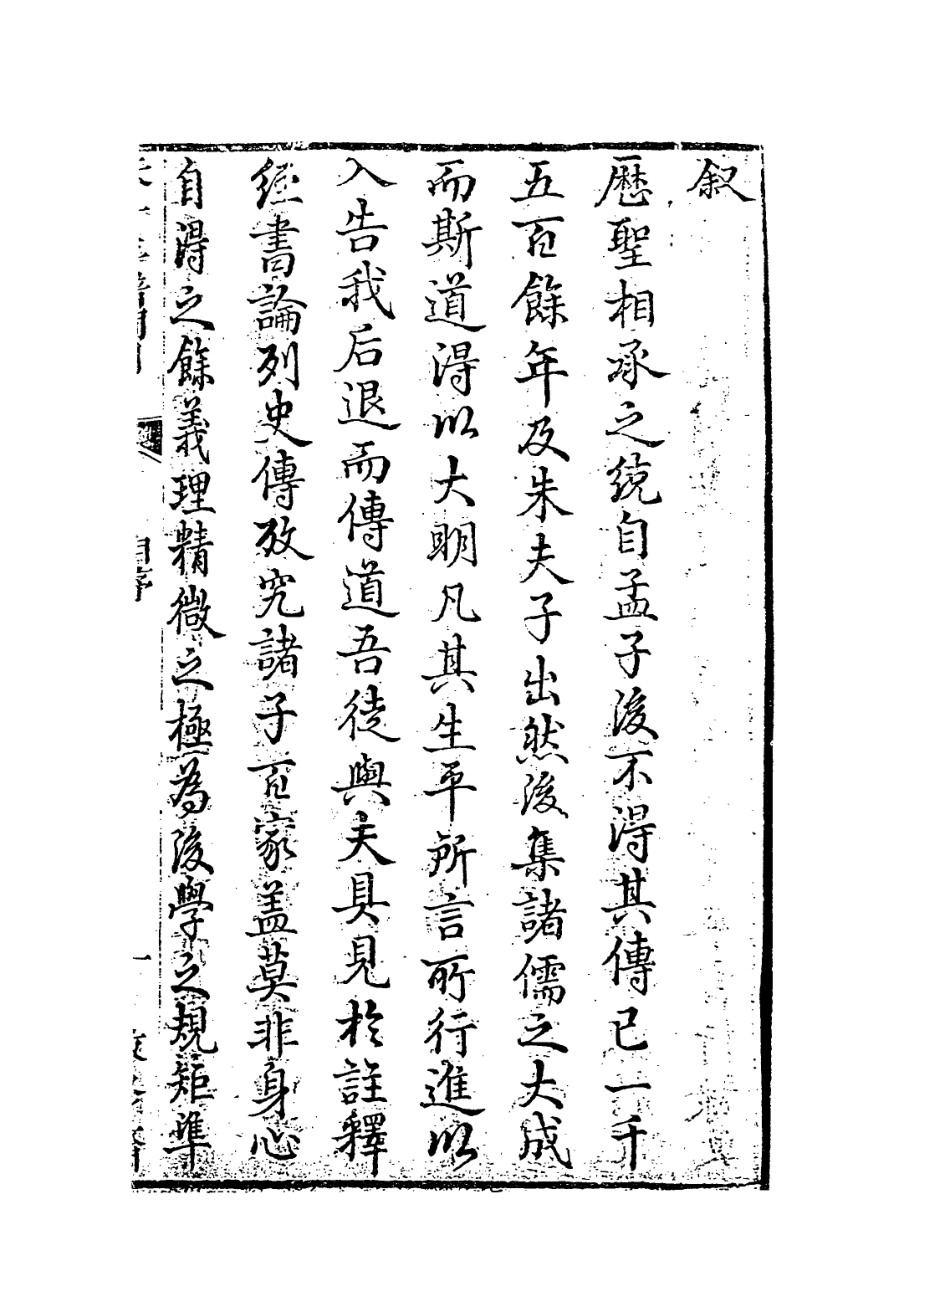 叙
歷聖相承之統自孟子後不得其傳已一千
五百餘年及朱夫子出然後集諸儒之大成
而斯道得以大明凡其生平所言所行進以
入告我后退而傳道吾徒與夫具見於註釋
經書論列史傳攷究諸子百家盖莫非身心
自得之餘義理精微之極為後學之規矩準
自序
一